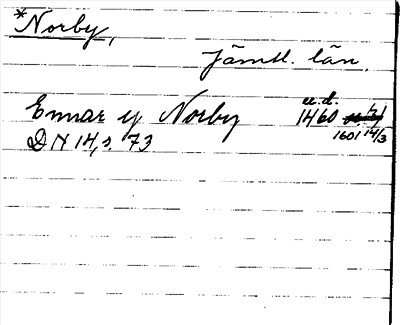 *Norby,
Jämtl. län.
u.d.
Ennar y Norby 1460
DN 14, s. 73 1601 14/3